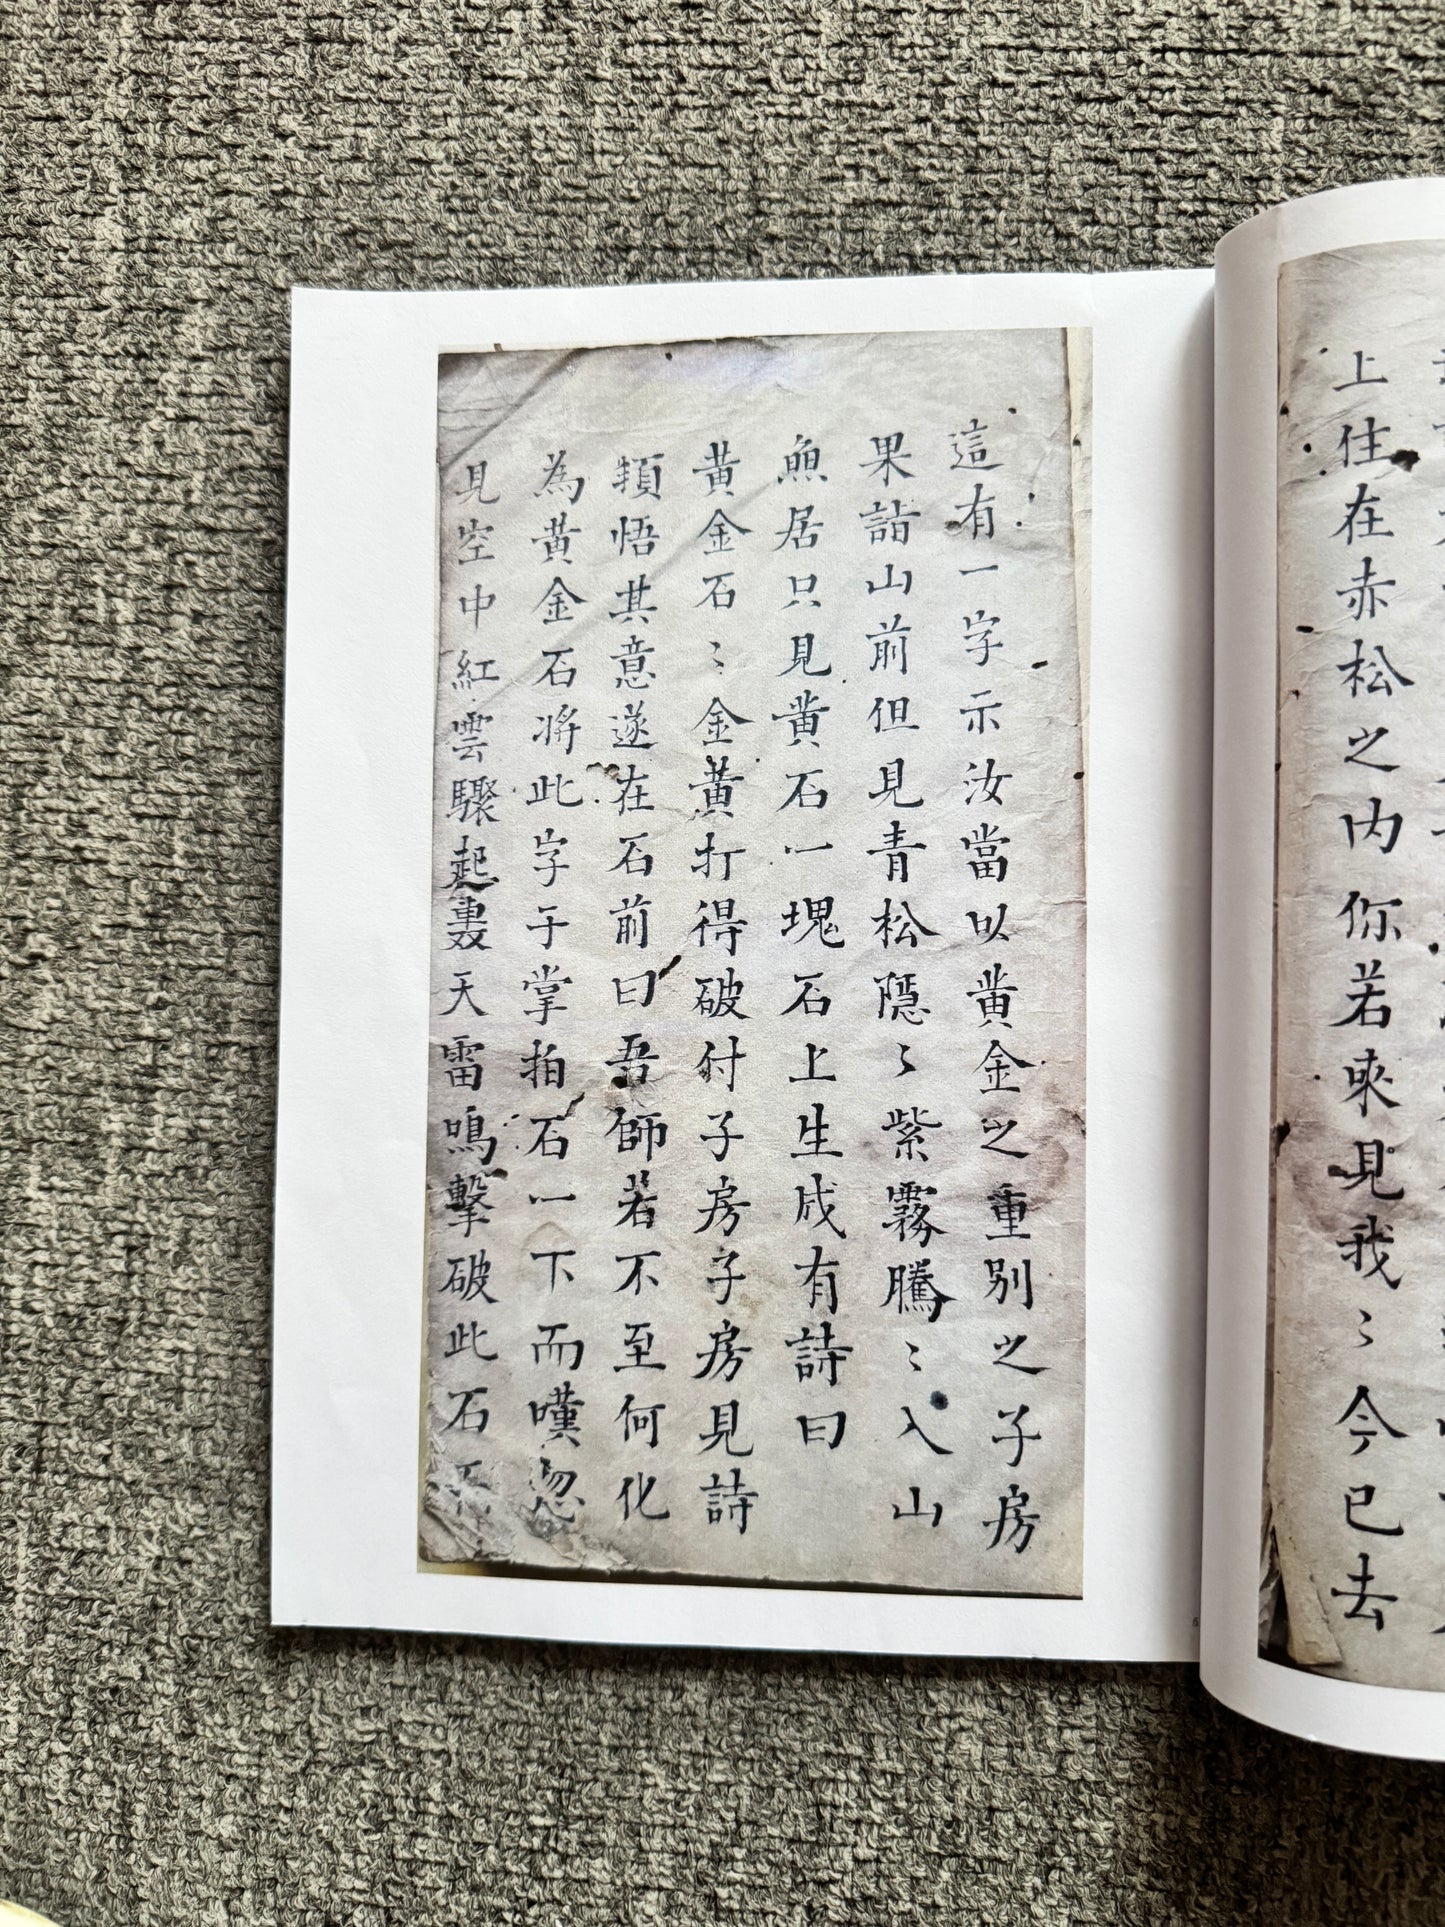 上住在赤松之内你若來見我〻今已去
這有一字示汝當以黄金之重別之子房
果詣山前但見青松隱〻紫霧騰〻入山
無居只見黄石一塊石上生成有詩曰
黄金石〻金黄打得破付子房子房見詩
頓悟其意遂在石前曰吾師若不至何化
為黄金石將此字于掌拍石一下而嘆忽
見空中紅雲驟起轟天雷鳴擊破此石